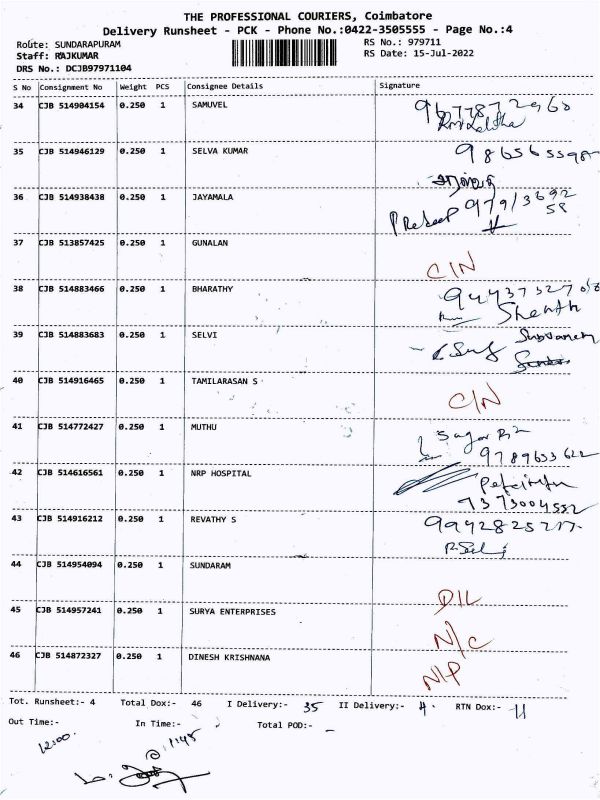 THE PROFESSIONAL COURIERS, Coimbatore
Delivery Runsheet - PCK - Phone No.:0422-3505555 - Page No.:4
Route: SUNDARAPURAM RS No.: 979711
Staff: RAJKUMAR RS Date: 15-Jul-2022
DRS No.: DCJB97971104
S No Consignment No Weight PCS Consignee Details Signature
34 CJB 514904154 0.250 1 SAMUVEL
35 CJB 514946129 0.250 1 SELVA KUMAR
36 CJB 514938438 0.250 1 JAYAMALA
37 CJB 513857425 0.250 1 GUNALAN C/N
38 CJB 514883466 0.250 1 BHARATHY
39 CJB 514883683 0.250 1 SELVI
40 CJB 514916465 0.250 1 TAMILARASAN S C/N
41 CJB 514772427 0.250 1 MUTHU 9789633622
42 CJB 514616561 0.250 1 NRP HOSPITAL 7373004552
43 CJB 514916212 0.250 1 REVATHY S
44 CJB 514954094 0.250 1 SUNDARAM D/L
45 CJB 514957241 0.250 1 SURYA ENTERPRISES N/C
46 CJB 514872327 0.250 1 DINESH KRISHNANA N/P
Tot. Runsheet:- 4 Total Dox:- 46 I Delivery:- 35 II Delivery:- 4 RTN Dox:- 11
Out Time:- In Time:- Total POD:-
12:00 1145